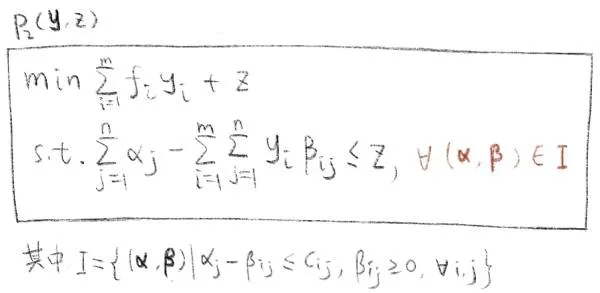 P₂(y,z)
min ∑_{i=1}^{m} f_i y_i + z
s.t. ∑_{j=1}^{n} α_j − ∑_{i=1}^{m} ∑_{j=1}^{n} y_i β_{ij} ≤ z, ∀ (α, β) ∈ I
其中 I = {(α, β) | α_j − β_{ij} ≤ c_{ij}, β_{ij} ≥ 0, ∀ i,j}